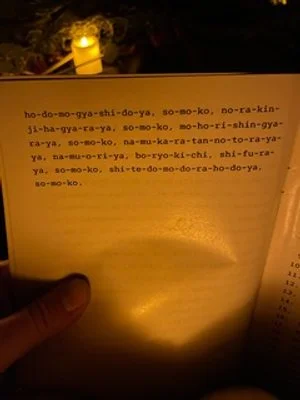 ho-do-mo-gya-shi-do-ya, so-mo-ko, no-ra-kin-
ji-ha-gya-ra-ya, so-mo-ko, mo-ho-ri-shin-gya-
ra-ya, so-mo-ko, na-mu-ka-ra-tan-no-to-ra-ya-
ya, na-mu-o-ri-ya, bo-ryo-ki-chi, shi-fu-ra-
ya, so-mo-ko, shi-te-do-mo-do-ra-ho-do-ya,
so-mo-ko.
10.
11.
12.
13.
14.
15.